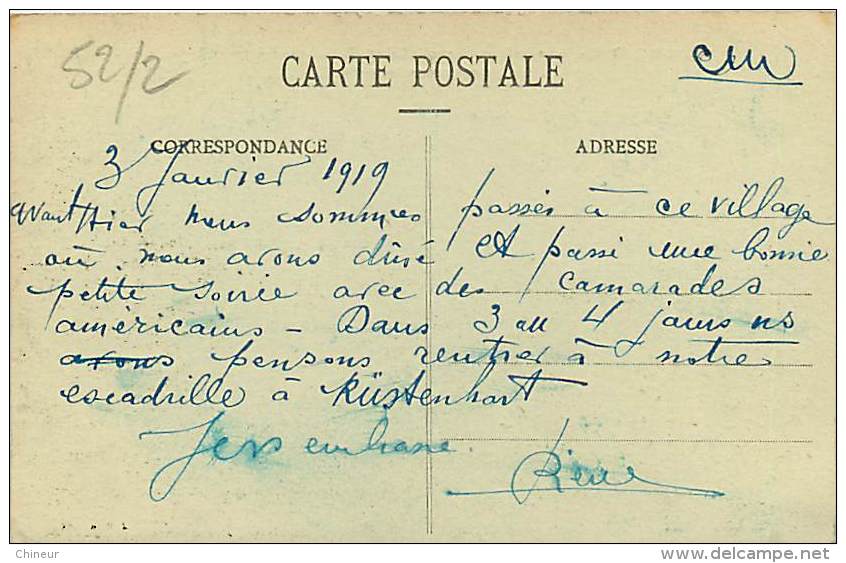 52/2
CARTE POSTALE
CORRESPONDANCE
ADRESSE
3 Janvier 1919
avant Hier nous sommes passés à ce village
où nous avons diné et passé une bonne
petite soirée avec des camarades
américains - Dans 3 au 4 jours ns
avons pensons rentrer à notre
escadrille à Rüstenhart
Je vs embrasse.
Chineur
delcampe.net